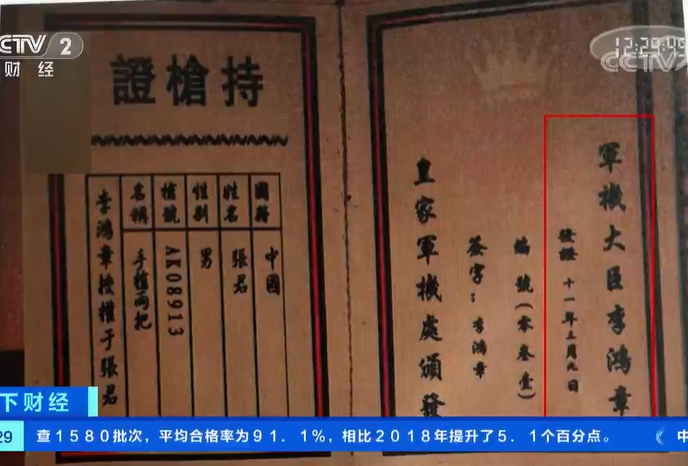 CCTV 2
财经
12:29:49
CCTV
持槍證
國籍 中國
姓名 張君
性别 男
槍號 AK08913
名稱 手槍兩把
李鴻章授權于張君
軍機大臣李鴻章
發證 十一年 月九日
編號(零叁壹)
簽字:李鴻章
皇家軍機處頒發
下财经
29
查1580批次，平均合格率为91．1%，相比2018年提升了5．1个百分点。
中